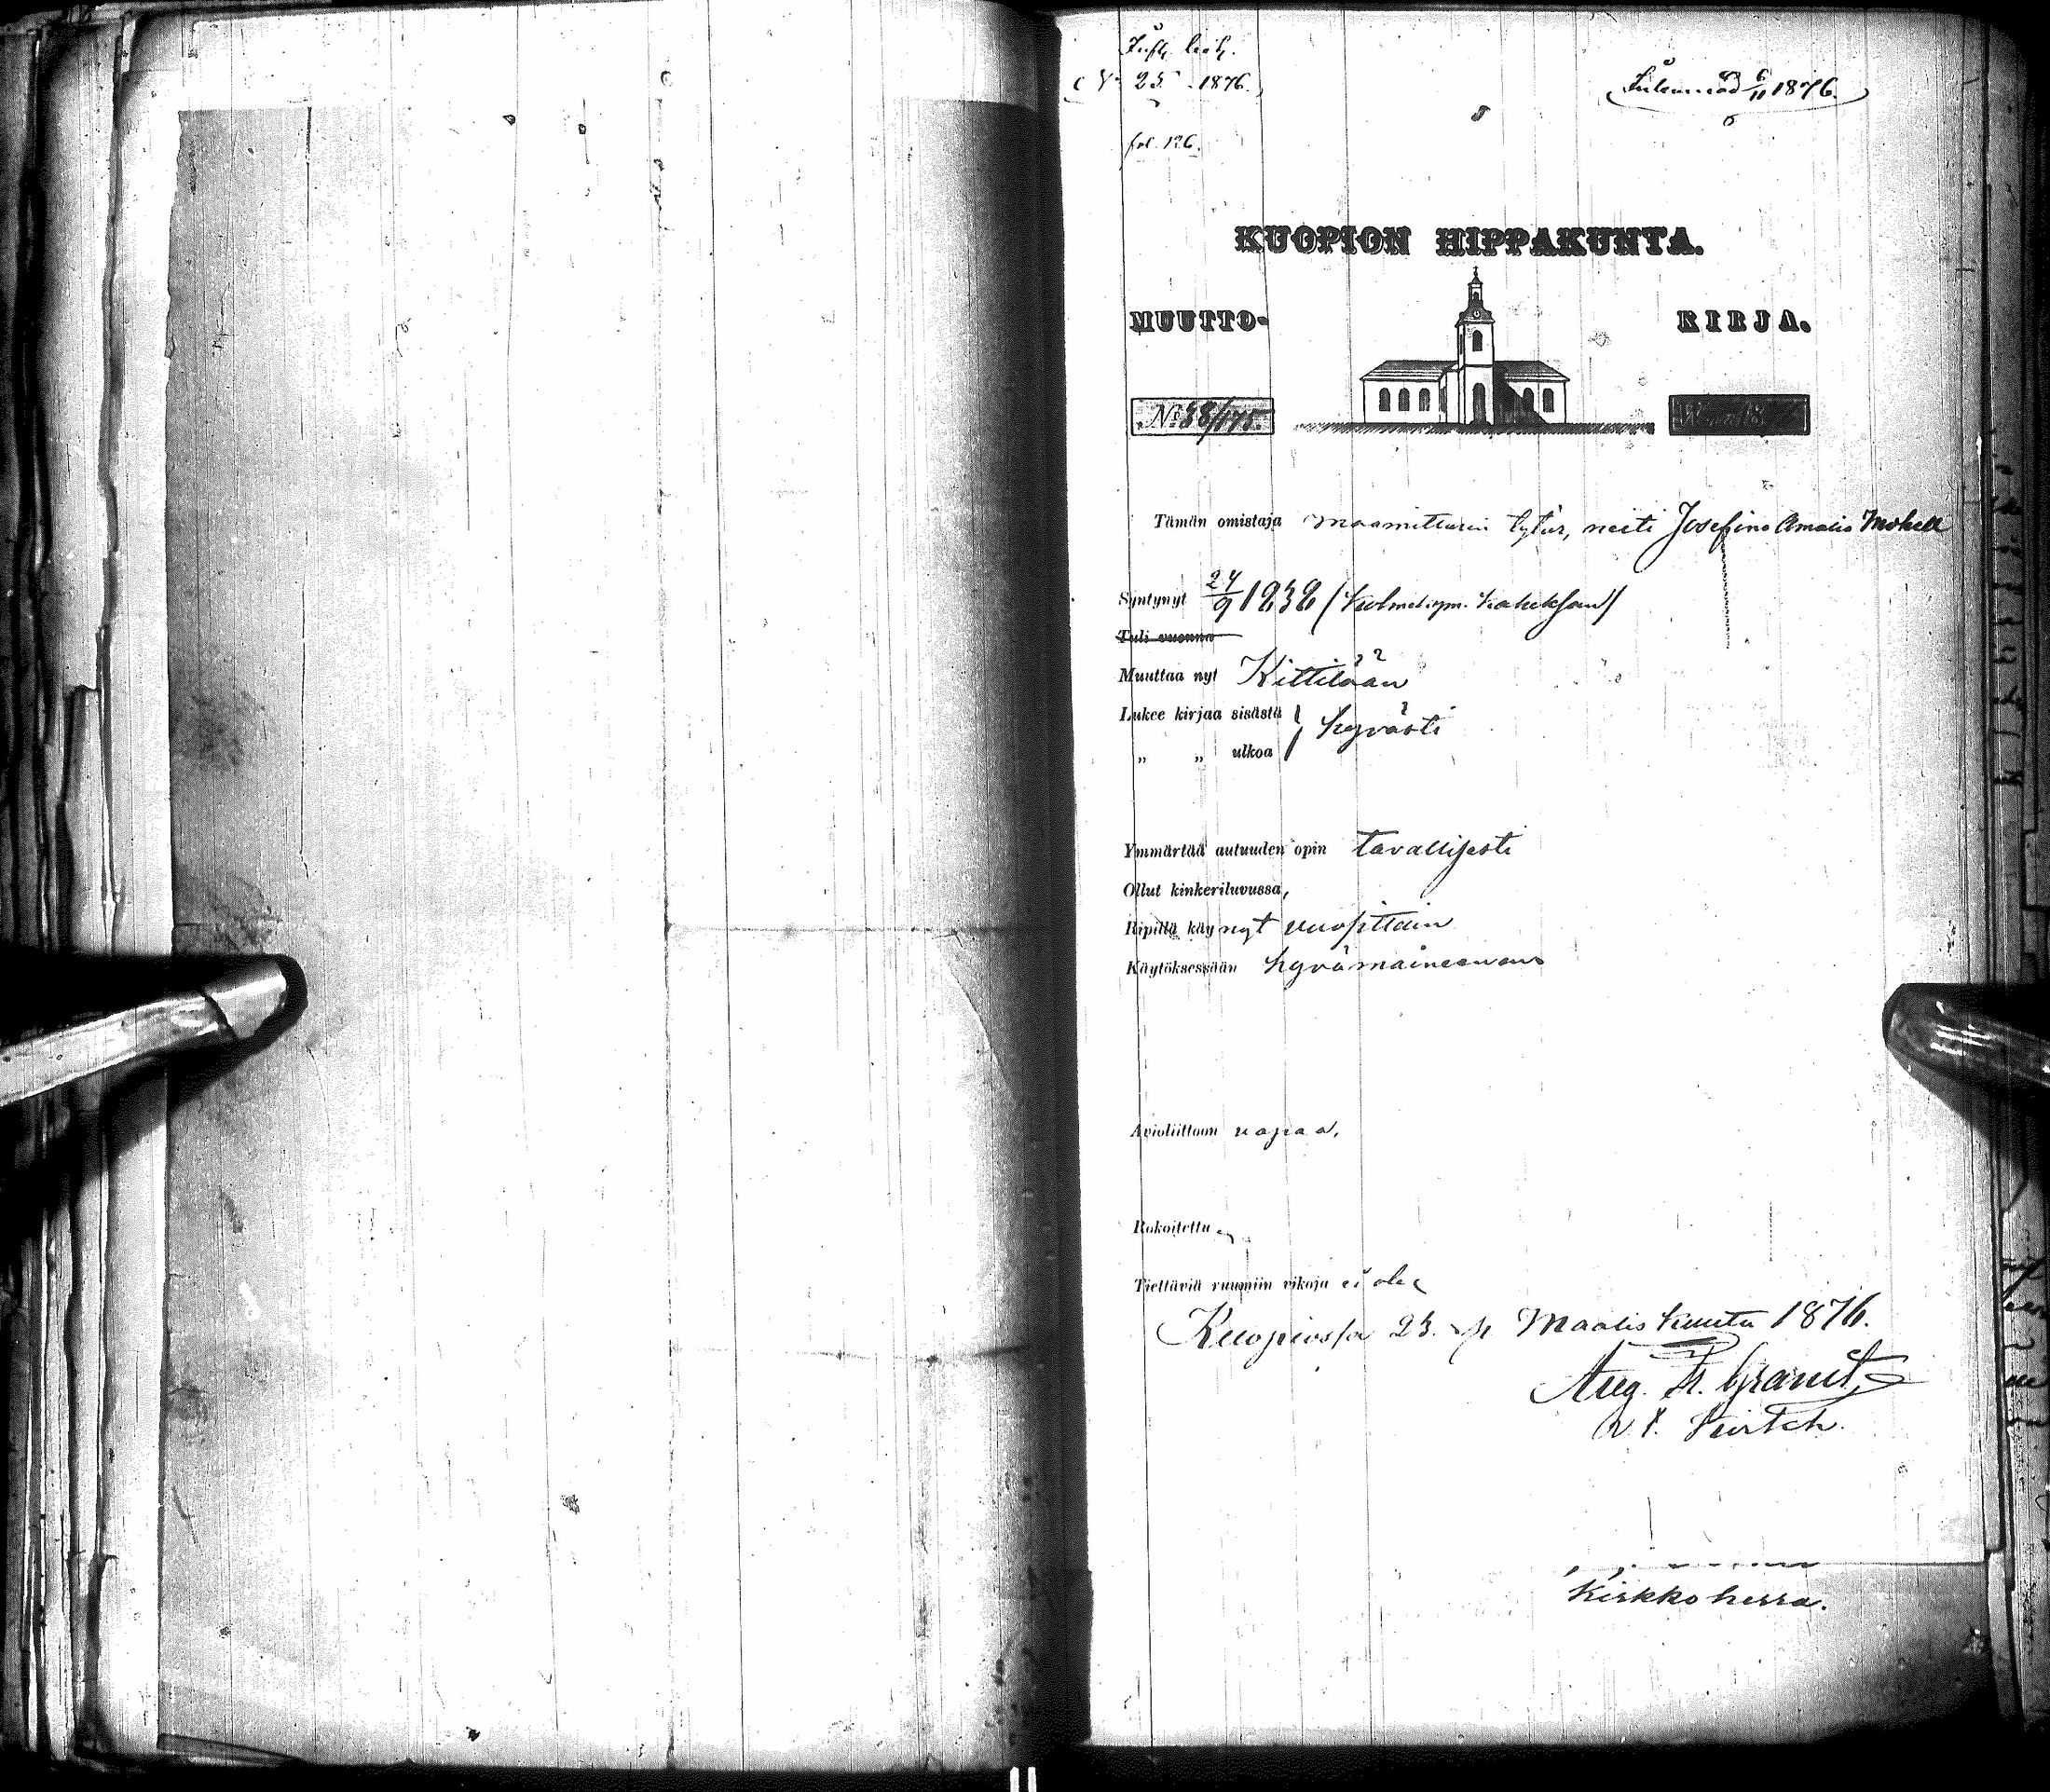 No 25 1876.
fol. 126.
6/11 1876.
KUOPION HIPPAKUNTA.
MUUTTO- KIRJA.
No 38/175.
Tämän omistaja maamittarin tytär, neiti Josefina Amalia Mohell
Syntynyt 24/9 1838 (kolmekym. kahdeksan)
Tuli vuonna
Muuttaa nyt Kittilään
Lukee kirjaa sisästä hyvästi
„ „ ulkoa
Ymmärtää autuuden opin tavallisesti
Ollut kinkeriluvussa,
Ripillä käynyt vuosittain
Käytöksessään hyvämaineinen
Avioliittoon vapaa.
Rokoitettu
Tiettäviä ruumiin vikoja ei ole
Kuopiossa 23. p Maaliskuuta 1876.
Aug. Fr. Granit,
v. t.
Kirkkoherra.